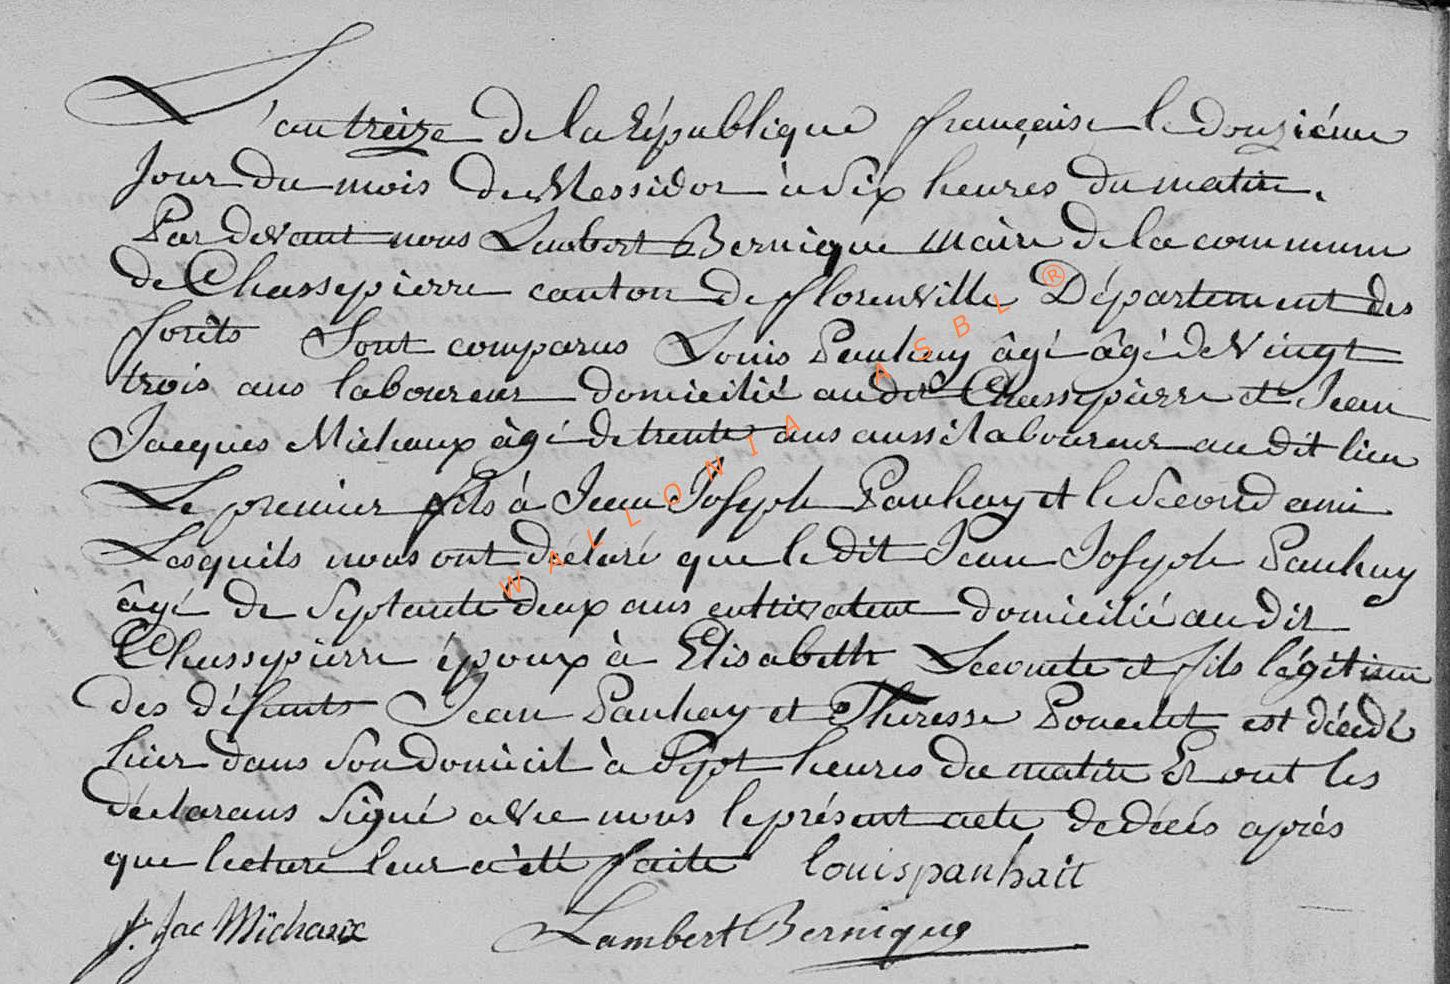 L'an treize de la République française le douziéme
Jour du mois de Messidor à Six heures du matin.
Par devant nous Lambert Bernique Maire de la commune
de Chassepierre canton de florenville Département des
forêts Sont comparus Louis Panhay âgé âgé de Vingt
trois ans laboureur domicilié audit Chassepierre et Jean
Jacques Michaux âgé de trente ans aussi laboureur au dit lieu
Le premier fils à Jean Joseph Panhay et le Second ami
Lesquels nous ont déclaré que le dit Jean Joseph Panhay
âgé de Septante deux ans cultivateur domicilié au dit
Chassepierre époux à Elisabeth Lecomte et fils légitime
des défunts Jean Panhay et Theresse Poncelet est décédé
hier dans Son domicil à Sept heures du matin Et ont les
déclarans Signé avec nous le présent acte de décés après
que lecture leur a été faite louis panhait
J. Jac Michaux Lambert Bernique
WALLONIA ASBL ®